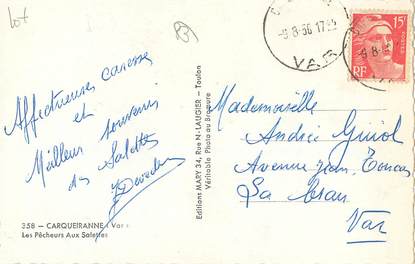 Lot
-9-8-56 17
VAR
15F
POSTES
RF
Affectueuses caresses
et
Meilleur souvenir
des Salettes
Editions MARY 34, Rue N-LAUGIER — Toulon
Véritable Photo au Bromure
Mademoiselle
Andrée Guiol
Avenue Jean
La Crau
Var
358 — CARQUEIRANNE (Var)
Les Pêcheurs Aux Salettes